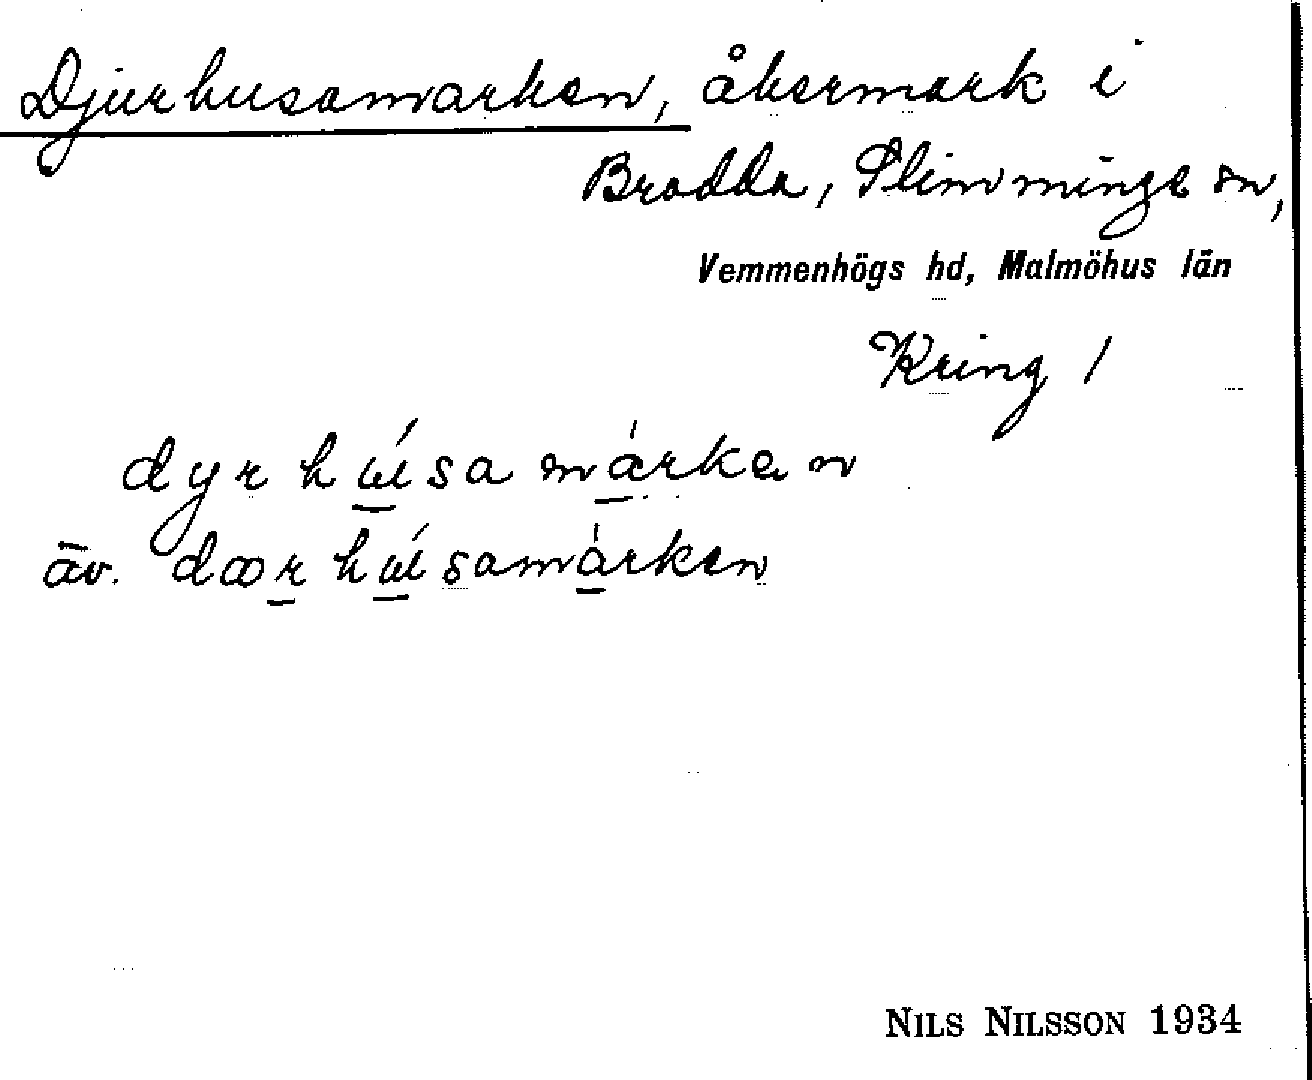 Djurhusamarken, åkermark i
Brodda, Slimminge sn,
Vemmenhögs hd, Malmöhus län
Kring 1
dyrhúsamárken
äv. dœrhúsamárken
NILS NILSSON 1934